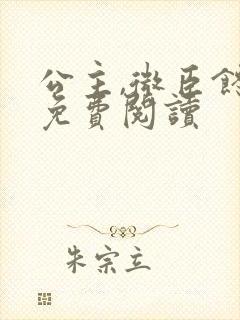 公主,微臣
免費閱讀
朱宗立